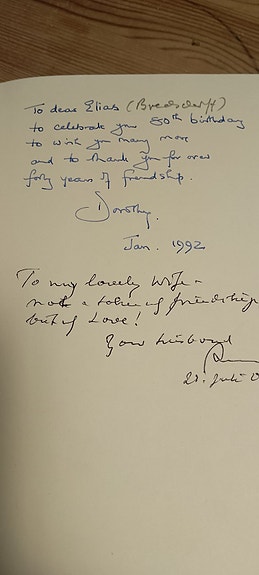 To dear Elias (Bredsdorff)
to celebrate your 80th birthday
to wish you many more
and to thank you for over
forty years of friendship.
Dorothy.
Jan. 1992
To my lovely Wife -
not a token of friendship
but of Love!
Your husband
21. juli